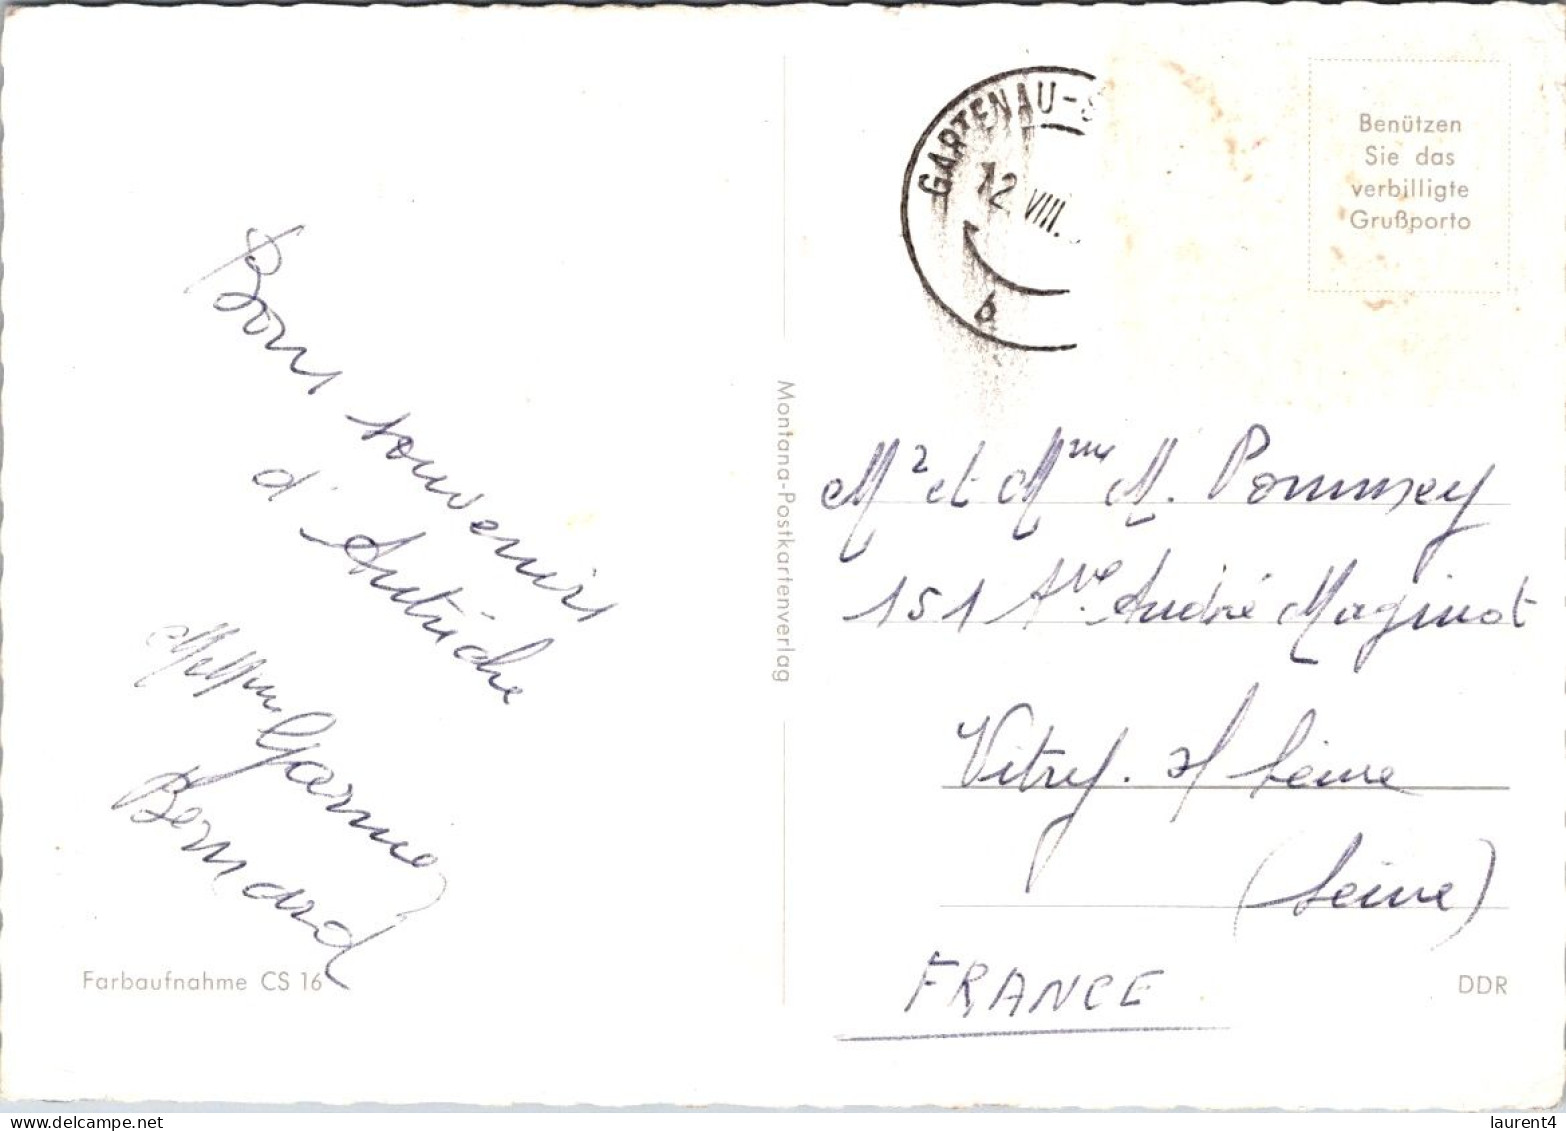 Bons souvenirs
d'Autriche
M et Mme Garnier
Bernard
Farbaufnahme CS 16
Montana-Postkartenverlag
GARTENAU-S
12. VIII.
b
Benützen
Sie das
verbilligte
Grußporto
Mr et Mme M. Pommey
151 Ave André Maginot
Vitry s/ Seine
(Seine)
FRANCE
DDR
www.delcampe.net
laurent4